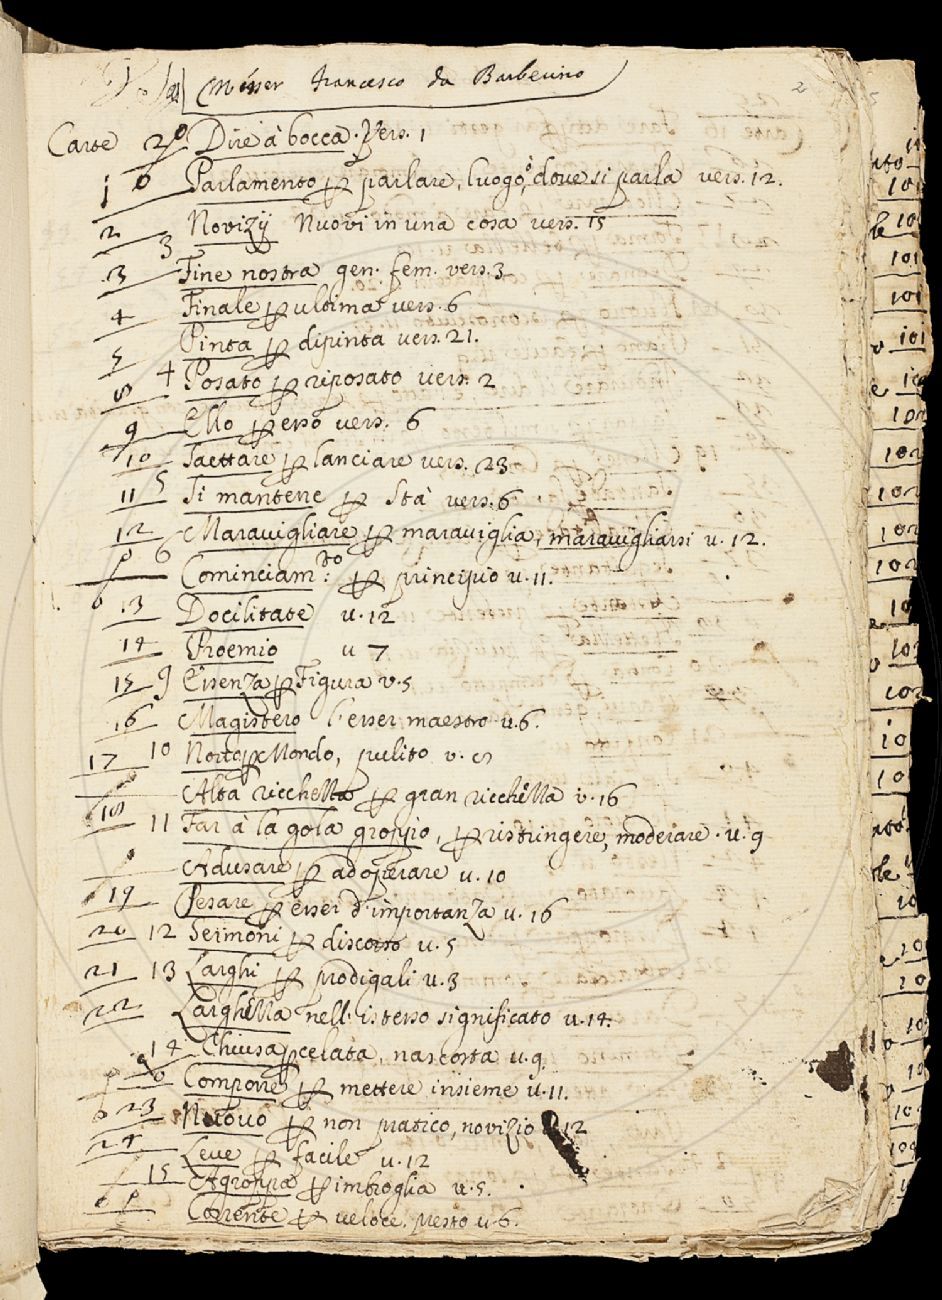 Messer Francesco da Barberino 2
Carte 2 Dire à bocca. Vers. 1
1 Parlamento per parlare, luogo, dove si parla vers. 12.
2 Novizij Nuovi in una cosa vers. 15
3 3 Fine nostra gen. fem. vers. 3
4 Finale per ultima vers. 6
5 Pinta per dipinta vers. 21.
8 4 Posato per riposato vers. 2
9 Ello per esso vers. 6
10 Saettare per lanciare vers. 23
11 5 Si mantene per Stà vers. 6
12 Maravigliare per maraviglia, maravigliarsi u. 12.
6 Cominciam.to per principio u. 11.
13 Docilitate u. 12
14 Proemio u 7
15 9 Essenza per Figura v. 5
16 Magistero l'esser maestro u. 6.
17 10 Netto per Mondo, pulito v. 8
18 Alta ricchezza per gran ricchezza v. 16
11 Far à la gola groppo, per ristringere, moderare. u. 9
Adusare per adoperare u. 10
19 Pesare per esser d'importanza u. 16
20 12 Sermoni per discorso u. 5
21 13 Larghi per prodigali u. 3
22 Larghezza nell' istesso significato u. 14.
14 Chiusa per celata, nascosta u. 9.
Compone per mettere insieme u. 11.
23 Nuovo per non pratico, novizio 12
24 Leve per facile u. 12
15 Agroppa per imbroglia u. 5.
Corrente per veloce, presto u. 6.